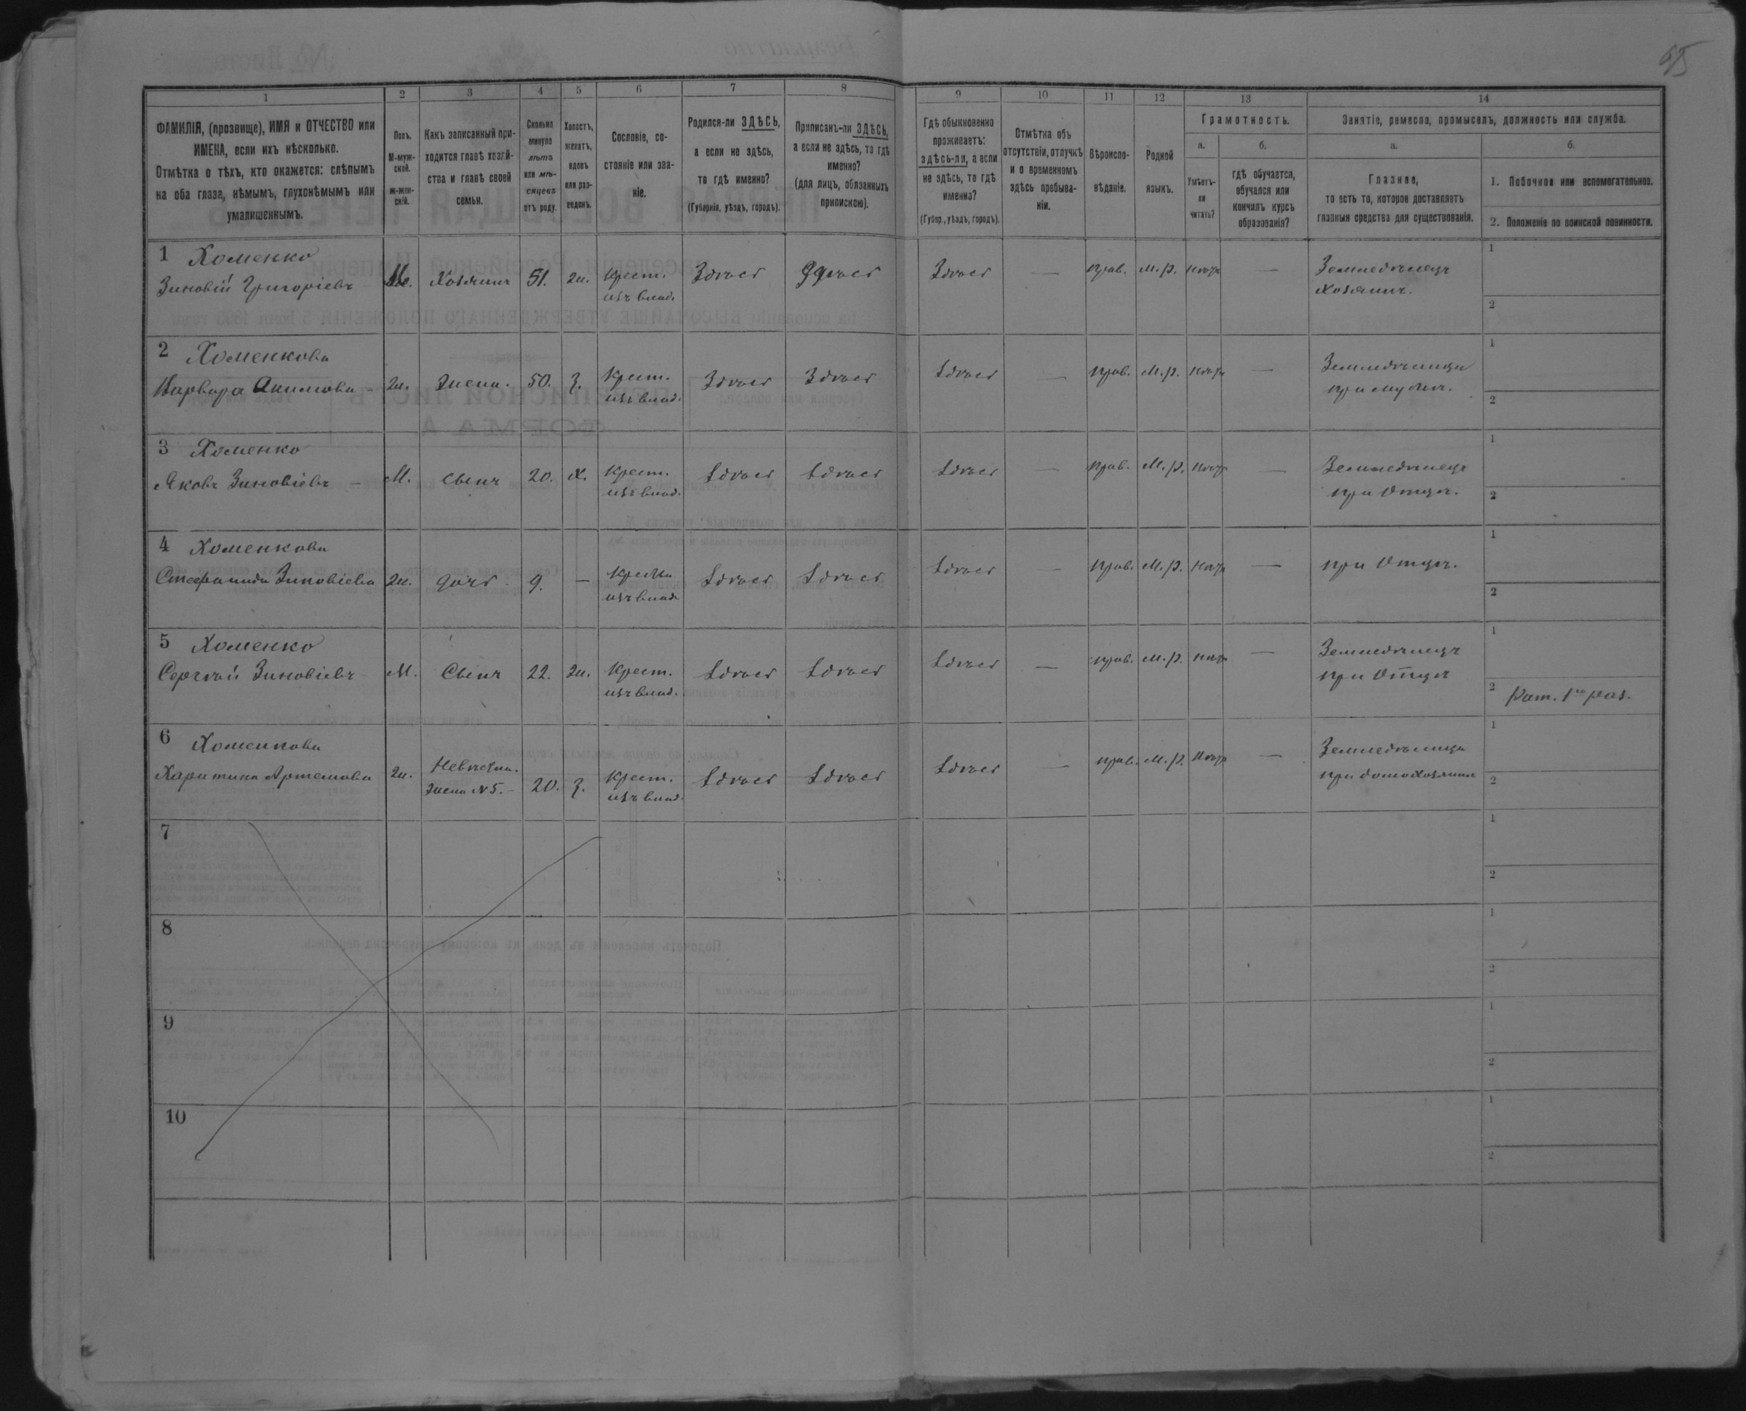 55
1 2 3 4 5 6 7 8 9 10 11 12 13 14
ФАМИЛІЯ, (прозвище), ИМЯ и ОТЧЕСТВО или ИМЕНА, если ихъ нѣсколько.
Отмѣтка о тѣхъ, кто окажется: слѣпымъ на оба глаза, нѣмымъ, глухонѣмымъ или умалишеннымъ.
Полъ.
М-муж-ской.
ж-жен-скій.
Какъ записанный при-ходится главѣ хозяй-ства и главѣ своей семьи.
Сколько минуло лѣтъ или мѣ-сяцевъ отъ роду.
Холостъ, женатъ, вдовъ или раз-веденъ.
Сословіе, со-стояніе или зва-ніе.
Родился-ли ЗДѢСЬ, а если не здѣсь, то гдѣ именно?
(Губернія, уѣздъ, городъ).
Приписанъ-ли ЗДѢСЬ, а если не здѣсь, то гдѣ именно?
(для лицъ, обязанныхъ припискою).
Гдѣ обыкновенно проживаетъ: здѣсь-ли, а если не здѣсь, то гдѣ именно?
(Губер., уѣздъ, городъ).
Отмѣтка объ отсутствіи, отлучкѣ и о временномъ здѣсь пребыва-ніи.
Вѣроиспо-вѣданіе.
Родной языкъ.
Грамотность.
а.
Умѣетъ-ли читать?
б.
гдѣ обучается, обучался или кончилъ курсъ образованія?
Занятіе, ремесло, промыселъ, должность или служба.
а.
Главное,
то есть то, которое доставляетъ главныя средства для существованія.
б.
1. Побочное или вспомогательное.
2. Положеніе по воинской повинности.
1 Хоменко
Зиновій Григоріевъ М. Хозяинъ 51. ж. Крест. изъ влад. Здѣсь Здѣсь Здѣсь — прав. М.р. нѣтъ — Земледѣлецъ хозяинъ. 1 2
2 Хоменкова
Варвара Акимова - ж. Жена. 50. з. Крест. изъ влад. Здѣсь Здѣсь Здѣсь — прав. М.р. нѣтъ — Земледѣлица при мужѣ. 1 2
3 Хоменко
Яковъ Зиновіевъ - М. Сынъ 20. х. Крест. изъ влад. Здѣсь Здѣсь Здѣсь — прав. М.р. нѣтъ — Земледѣлецъ при Отцѣ. 1 2
4 Хоменкова
Стефанида Зиновіева ж. дочь - 9. — Крест. изъ влад. Здѣсь Здѣсь Здѣсь — прав. М.р. нѣтъ — при Отцѣ. 1 2
5 Хоменко
Сергѣй Зиновіевъ - М. Сынъ 22. ж. Крест. изъ влад. Здѣсь Здѣсь Здѣсь — прав. М.р. нѣтъ — Земледѣлецъ при Отцѣ 1 2 Рат. 1го раз.
6 Хоменкова
Харитина Артемова ж. Невѣстка. Жена №5. - 20. з. Крест. изъ влад. Здѣсь Здѣсь Здѣсь — прав. М.р. нѣтъ — Земледѣлица при домохозяинѣ 1 2
7 1 2
8 1 2
9 1 2
10 1 2